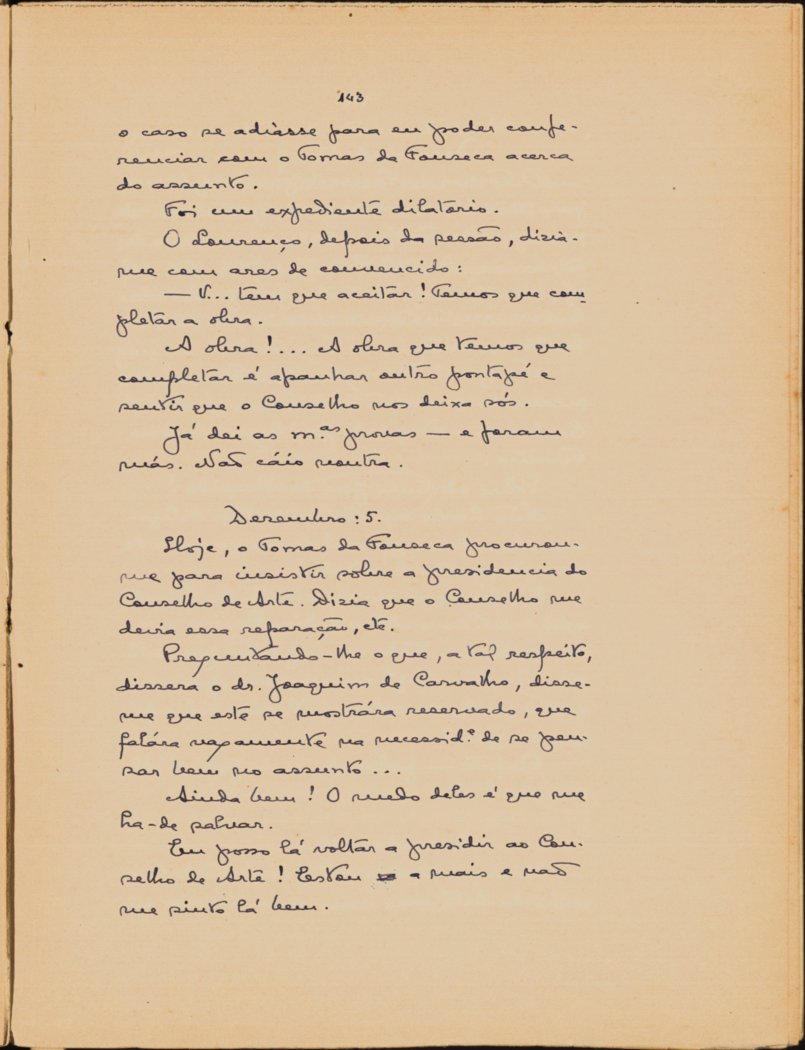 143
o caso se adiásse para eu poder confe-
renciar com o Tomas da Fonseca acerca
do assunto.
Foi um expediente dilatorio.
O Lourenço, depois da sessão, dizia-
me com ares de convencido:
— V... tem que aceitar! Temos que com-
pletar a obra.
A obra!... A obra que temos que
completar é apanhar outro pontapé e
sentir que o Conselho nos deixa sós.
Já dei as m.as provas — e foram
más. Não cáio noutra.
Dezembro: 5.
Hoje, o Tomas da Fonseca procurou-
me para insistir sobre a presidencia do
Conselho de Arte. Dizia que o Conselho me
devia essa reparação, etc.
Preguntando-lhe o que, a tal respeito,
dissera o dr. Joaquim de Carvalho, disse-
me que este se mostrára reservado, que
falára vagamente na necessid.e de se pen-
sar bem no assunto...
Ainda bem! O medo deles é que me
ha-de salvar.
Eu posso lá voltar a presidir ao Con-
selho de Arte! Estou a mais e não
me sinto lá bem.